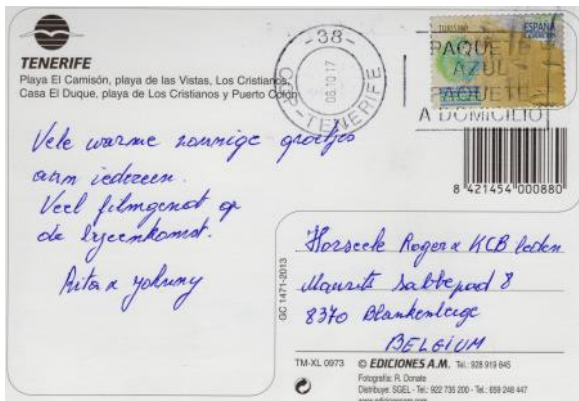 TENERIFE
Playa El Camisón, playa de las Vistas, Los Cristianos,
Casa El Duque, playa de Los Cristianos y Puerto Colón
-38-
06.10.17
-TENERIFE
TURISMO
ESPAÑA
PAQUETE
AZUL
PAQUETE
A DOMICILIO
8 421454 000880
Vele warme zonnige groetjes
aan iedereen.
Veel filmgenot op
de bijeenkomst.
Rita x Johnny
GC 1471-2013
Roger x KCB leden
Maurits Sabbepad 8
8370 Blankenberge
BELGIUM
TM-XL 0973
© EDICIONES A.M. Tel.: 928 919 645
Fotografía: R. Donate
Distribuye: SGEL - Tel.: 922 735 200 - Tel.: 659 246 447